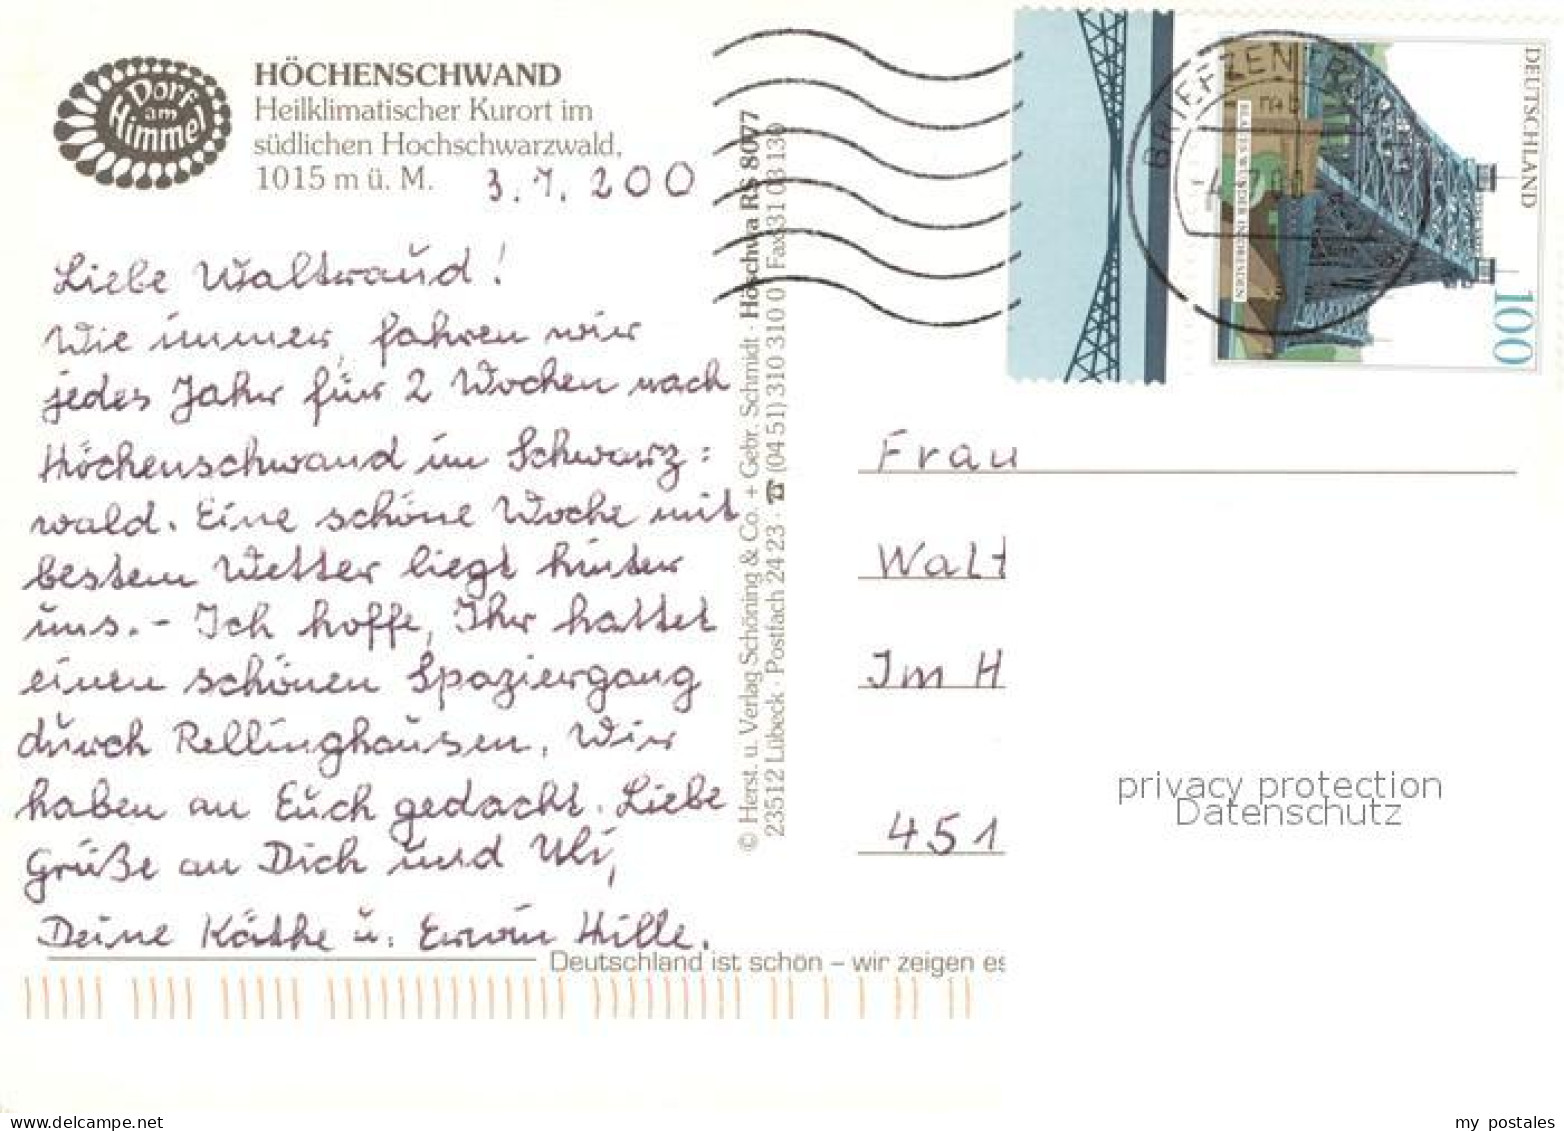 Dorf
am
Himmel
HÖCHENSCHWAND
Heilklimatischer Kurort im
südlichen Hochschwarzwald,
1015 m ü. M.
3.7.200
Liebe Waltraud!
Wie immer, fahren wir
jedes Jahr für 2 Wochen nach
Höchenschwand im Schwarz=
wald. Eine schöne Woche mit
bestem Wetter liegt hinter
uns.- Ich hoffe, Ihr hattet
einen schönen Spaziergang
durch Rellinghausen. Wir
haben an Euch gedacht. Liebe
Grüße an Dich und Uli,
Deine Käthe u. Erwin Hille.
© Herst. u. Verlag Schöning & Co. + Gebr. Schmidt · Höschwa RS 8077
23512 Lübeck · Postfach 24 23 · ☎ (04 51) 310 310 0 Fax 31 03 130
Deutschland ist schön – wir zeigen es
BRIEFZENTRUM
DEUTSCHLAND
100
BLAUES WUNDER IN DRESDEN
Frau
Walt
Im H
451
privacy protection
Datenschutz
delcampe.net
my_postales